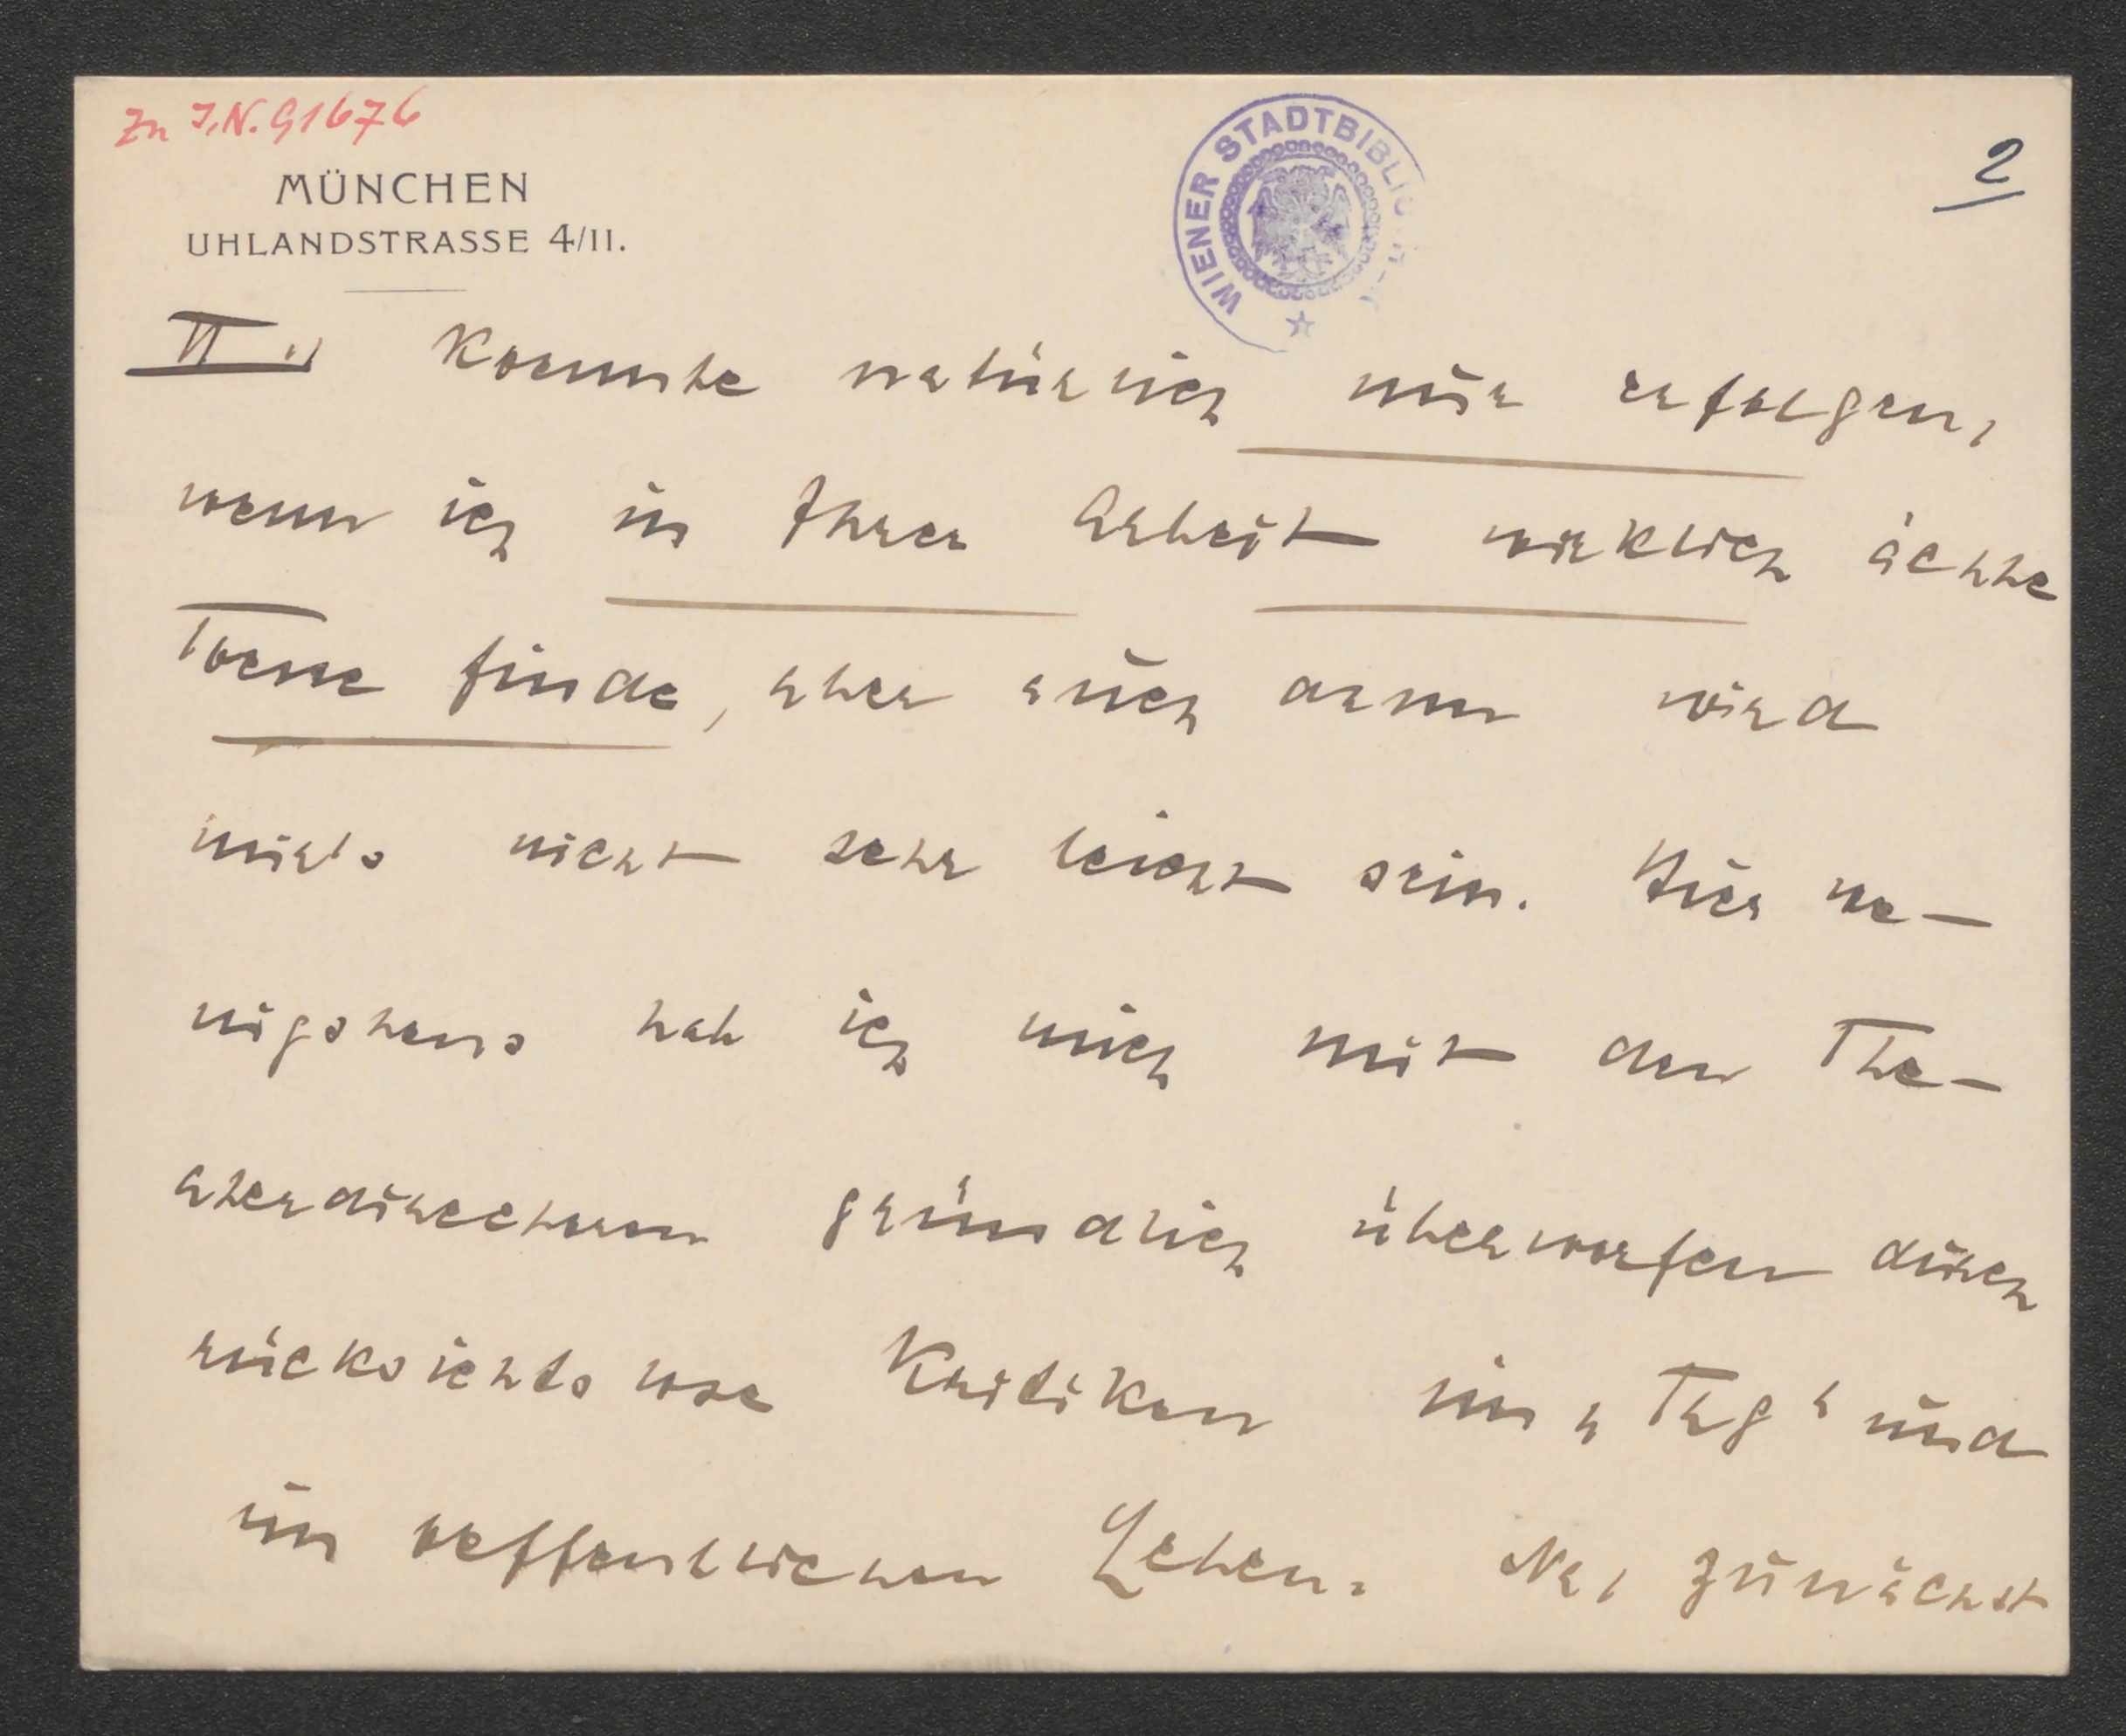 Zu I.N. 91676
MÜNCHEN
UHLANDSTRASSE 4/II.
WIENER STADTBIBLIOTHEK
2
II.) Koennte natürlich nur erfolgen,
wenn ich in Ihrer Arbeit wirklich ächte
Toene finde, aber auch dann wird
mir's nicht sehr leicht sein. Hier we-
nigstens hab ich mich mit den The-
aterdirectoren gründlich überworfen durch
rücksichtslose Kritiken im „Tag“ und
im oeffentlichen Leben. Na, zunächst